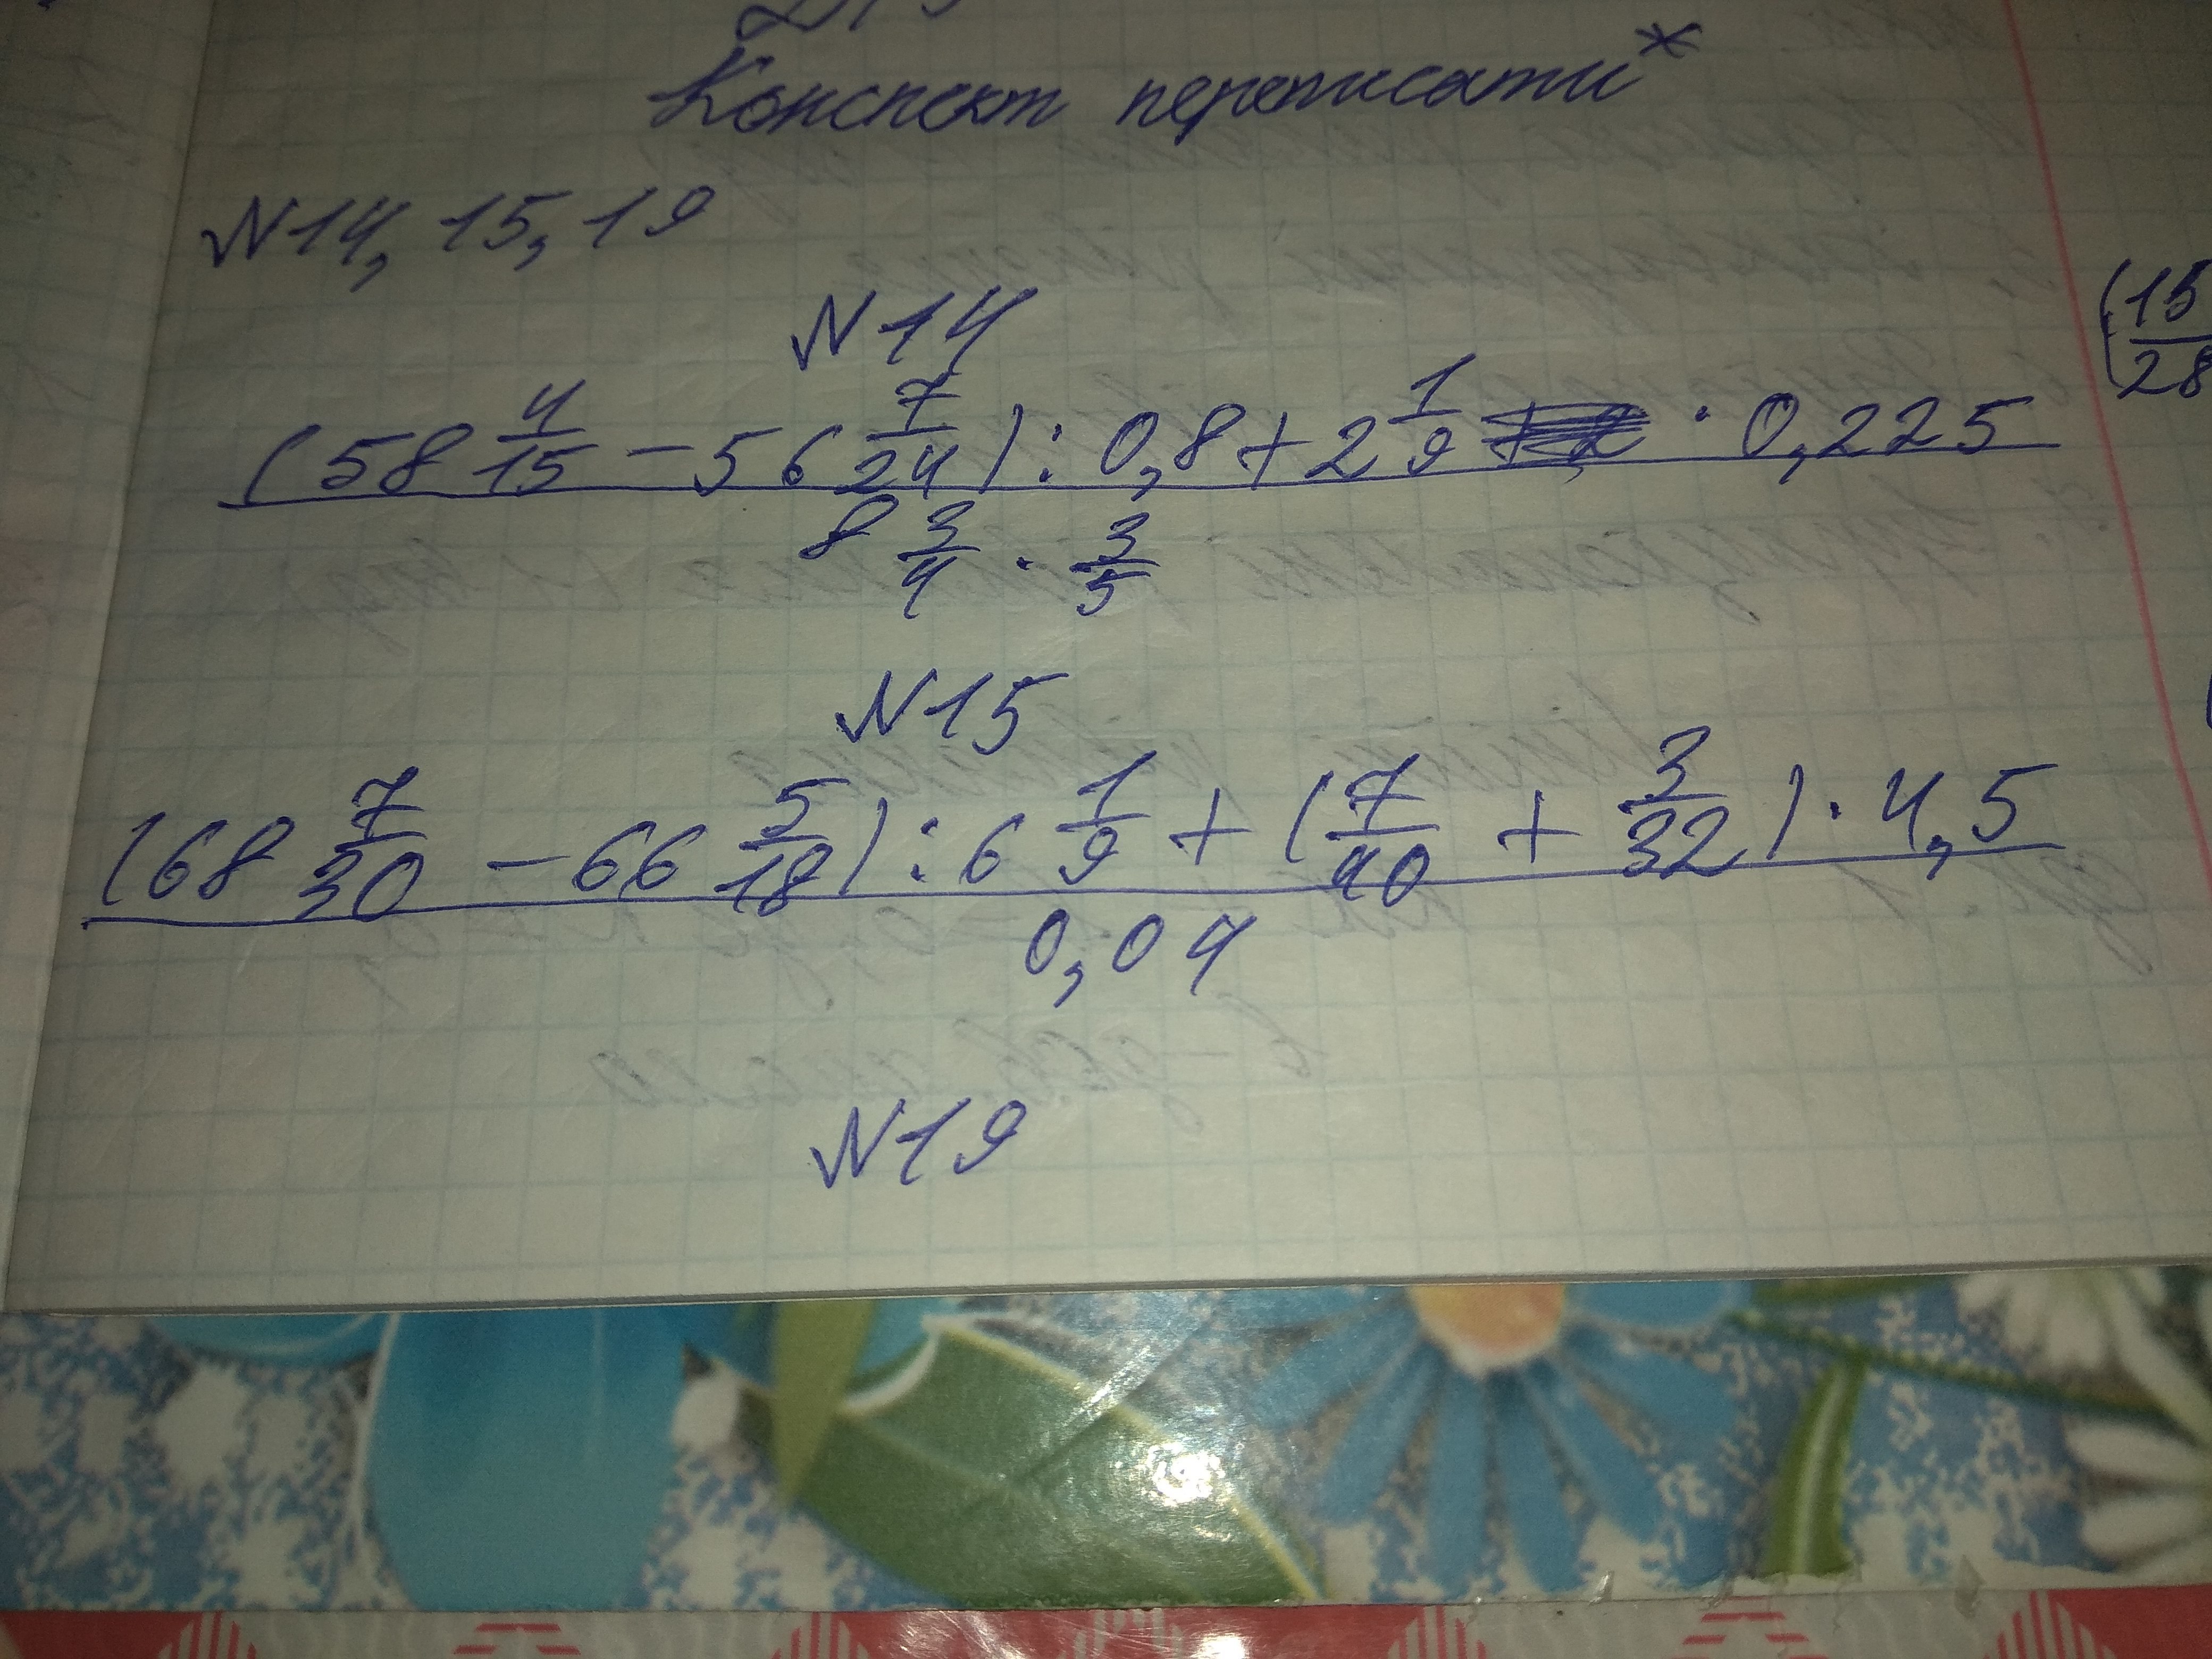 Конспект переписати*
N14, 15, 19
N14
(58 4/15 - 56 7/24) : 0,8 + 2 1/9 · 0,225
8 3/4 · 3/5
N15
(68 7/30 - 66 5/18) : 6 1/9 + (7/40 + 3/32) · 4,5
0,04
N19
(15/28